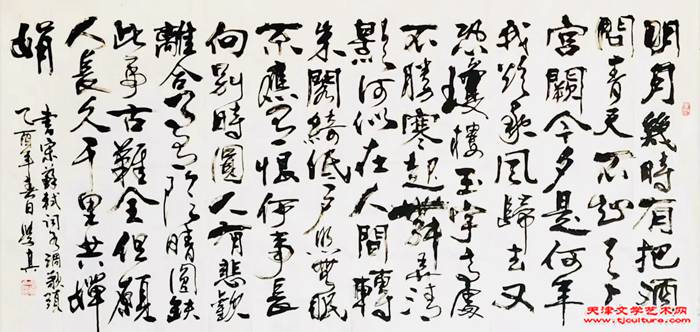 明月幾時有把酒
問青天不知天上
宮闕今夕是何年
我欲乘風歸去又
恐瓊樓玉宇高處
不勝寒起舞弄清
影何似在人間轉
朱閣綺低戶照無眠
不應有恨何事長
向別時圓人有悲歡
離合月有陰晴圓缺
此事古難全但願
人長久千里共嬋
娟
書宋蘇軾詞水調歌頭
乙酉年春日
天津文学艺术网
www.tjculture.com